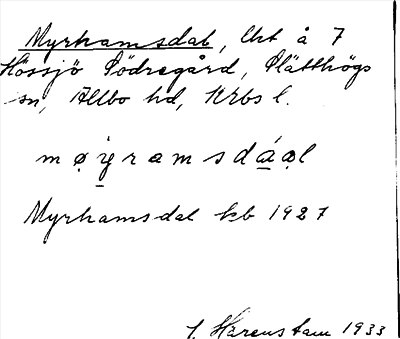 Myrhamsdal, lht å 7
Hössjö Södregård, Slätthögs
sn, Allbo hd, Krbs l.
m ø y̌ r a m s d á ə l
Myrhamsdal kb 1927
J. Härenstam 1933